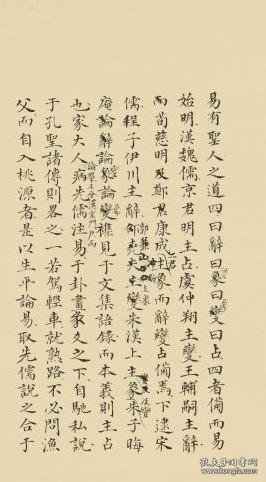 易有聖人之道四曰辭曰象曰變曰占四者備而易
始明漢魏儒京君明主占虞仲翔主變王輔嗣主辭
而荀慈明及鄭君康成主象而辭變占備焉下逮宋
儒程子伊川主辭邵堯夫主變朱漢上主象朱子晦
庵論辭論象論變襍見于文集語錄而本義則主占
也家大人病先儒注易于卦畫象爻之下自馳私說
于孔聖諸傳則畧之一若駕輕車就熟路不必問漁
父而自入桃源者是以生平論易取先儒說之合于
孔夫子旧书网